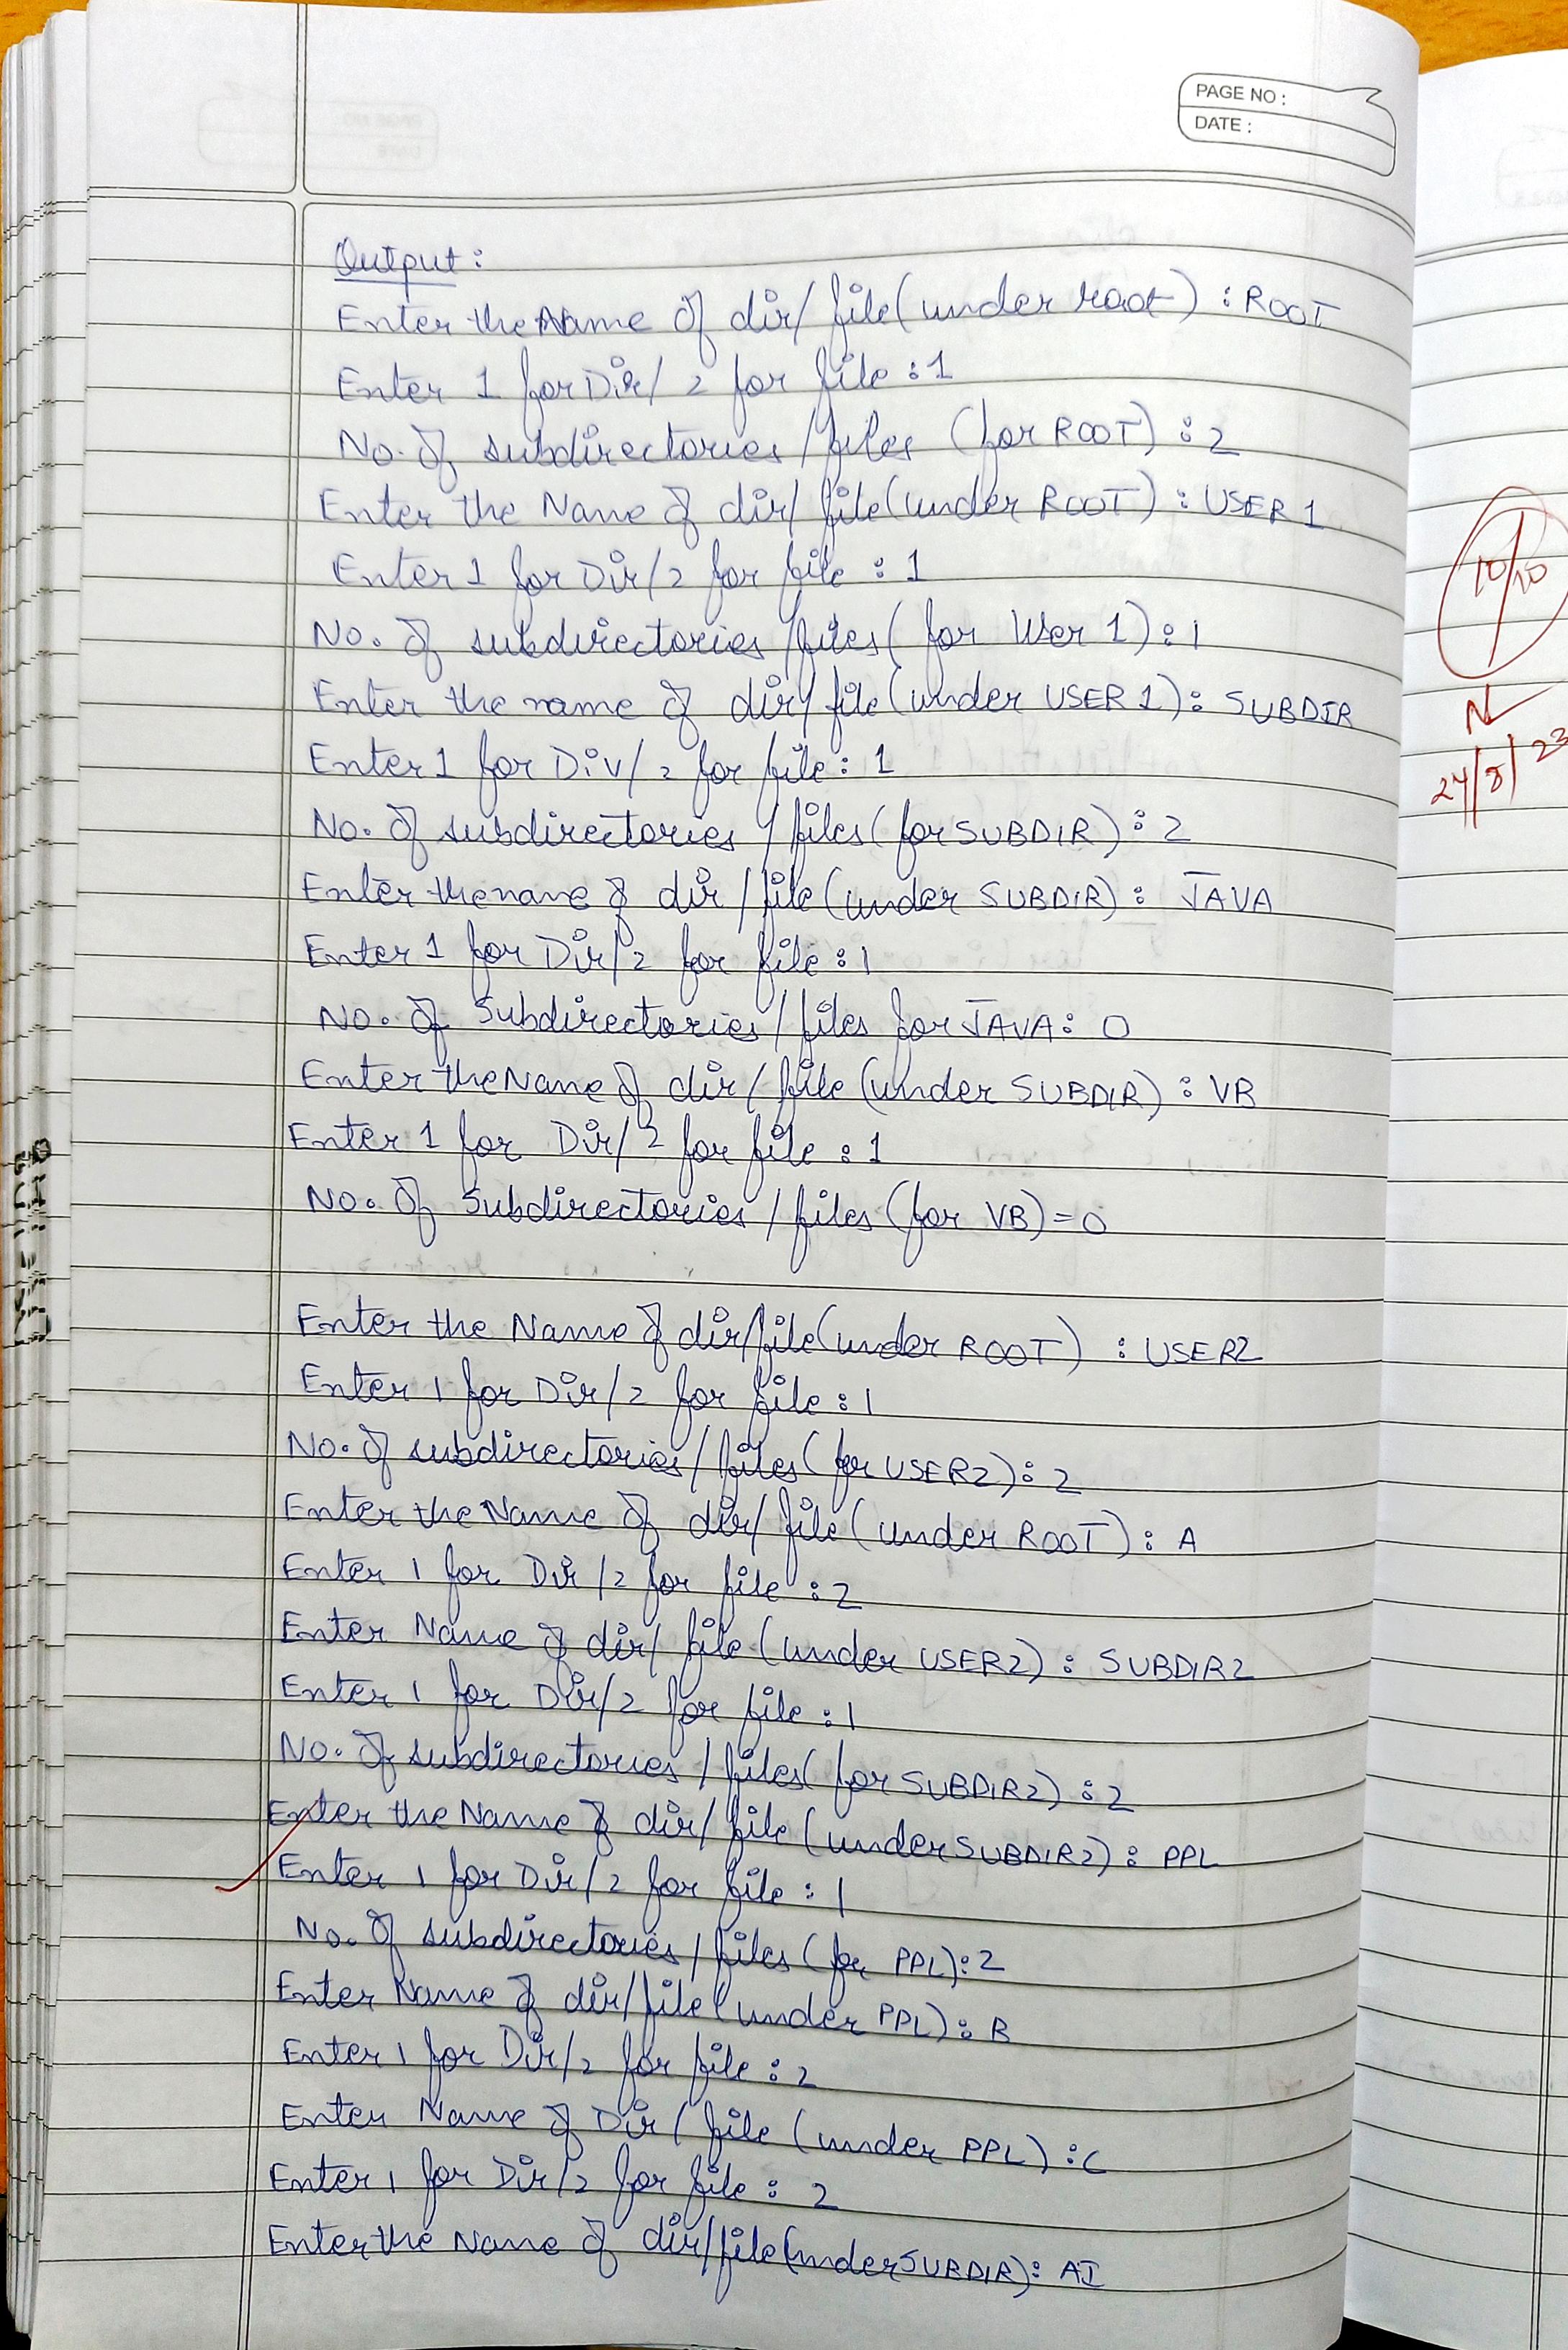 PAGE NO :
DATE :
Output :
Enter the Name of dir/ file (under root) : ROOT
Enter 1 for Dir/ 2 for file : 1
No. of subdirectories / files (for ROOT) : 2
Enter the Name of dir/ file (under ROOT) : USER 1
Enter 1 for Dir/2 for file : 1
No. of subdirectories /files ( for User 1) : 1
Enter the name of dir/ file (under USER 1) : SUBDIR
Enter 1 for Div/ 2 for file : 1
No. of subdirectories / files (for SUBDIR) : 2
Enter the name of dir / file (under SUBDIR) : JAVA
Enter 1 for Dir/2 for file : 1
No. of Subdirectories / files for JAVA : 0
Enter the Name of dir / file (under SUBDIR) : VB
Enter 1 for Dir/ 2 for file : 1
No. of Subdirectories / files (for VB) = 0
Enter the Name of dir/file (under ROOT) : USER2
Enter 1 for Dir/2 for file : 1
No. of subdirectories / files ( for USER2) : 2
Enter the Name of dir/ file ( under ROOT) : A
Enter 1 for Dir /2 for file : 2
Enter Name of dir/ file (under USER2) : SUBDIR2
Enter 1 for Dir/2 for file : 1
No. of subdirectories / files( for SUBDIR2) : 2
Enter the Name of dir/ file (under SUBDIR2) : PPL
Enter 1 for Dir/2 for file : 1
No. of subdirectories / files (for PPL) : 2
Enter Name of dir/file (under PPL) : B
Enter 1 for Dir/2 for file : 2
Enter Name of Dir / file (under PPL) : C
Enter 1 for Dir/2 for file : 2
Enter the Name of dir/file (under SUBDIR) : AI
10/10
24/8/23